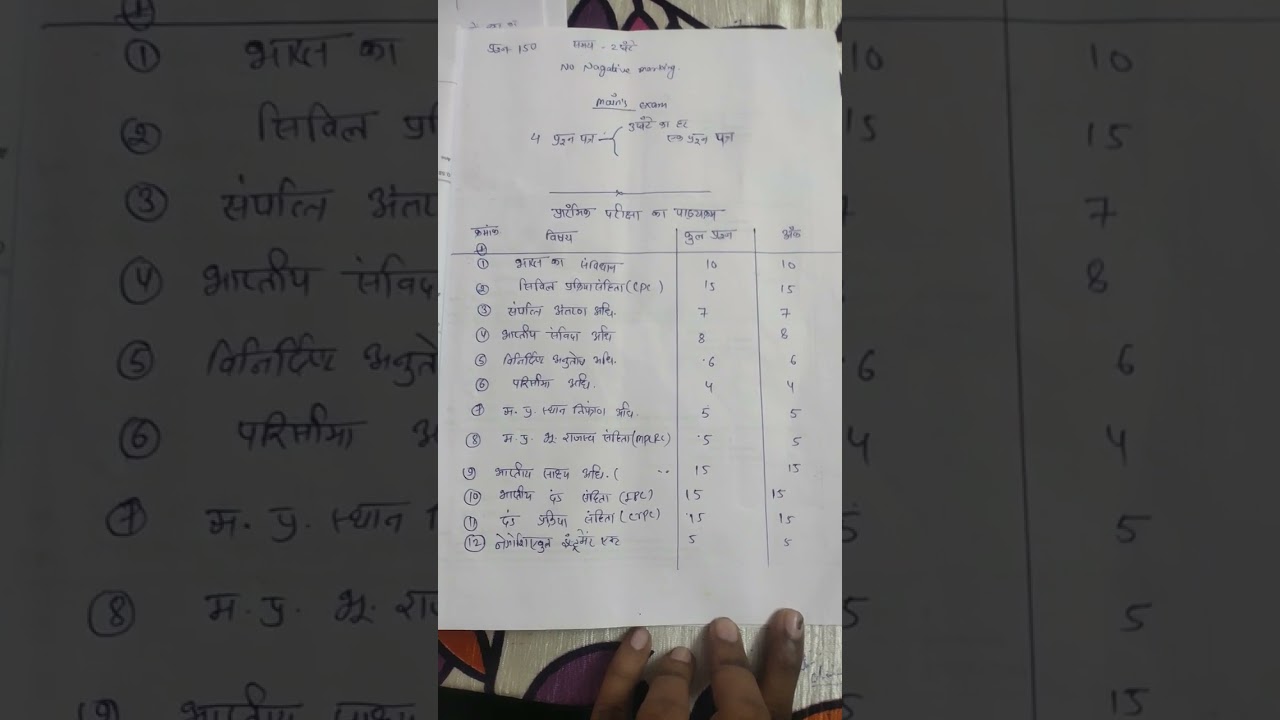 प्रश्न 150 समय - 2 घंटे
No Nagative marking.
main's exam
4 प्रश्न पत्र 3 घंटे का हर
एक प्रश्न पत्र
प्रारंभिक परीक्षा का पाठयक्रम
क्रमांक विषय कुल प्रश्न अंक
① भारत का संविधान 10 10
② सिविल प्रक्रिया संहिता (CPC) 15 15
③ संपत्ति अंतरण अधि. 7 7
④ भारतीय संविदा अधि 8 8
⑤ विनिर्दिष्ट अनुतोष अधि. 6 6
⑥ परिसीमा अधि. 4 4
⑦ म. प्र. स्थान नियंत्रण अधि. 5 5
⑧ म. प्र. भू. राजस्व संहिता (MPLRC) 5 5
⑨ भारतीय साक्ष्य अधि. ( 15 15
⑩ भारतीय दंड संहिता (IPC) 15 15
⑪ दंड प्रक्रिया संहिता (CrPC) 15 15
⑫ नेगोशिएबुल इंस्ट्रूमेंट एक्ट 5 5